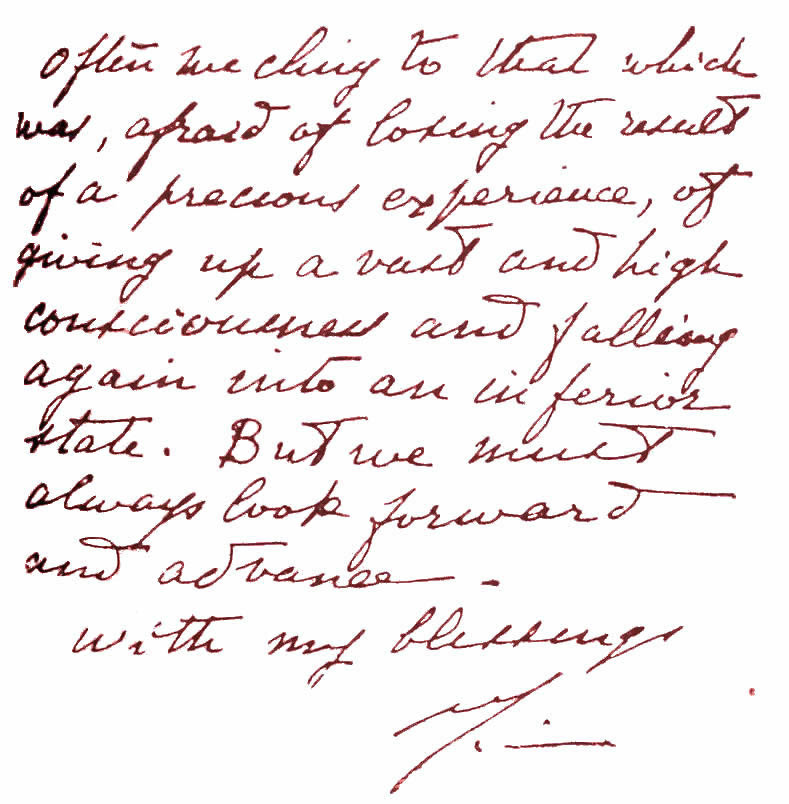 often we cling to that which
was, afraid of losing the result
of a precious experience, of
giving up a vast and high
consciousness and falling
again into an inferior
state. But we must
always look forward
and advance.
with my blessings